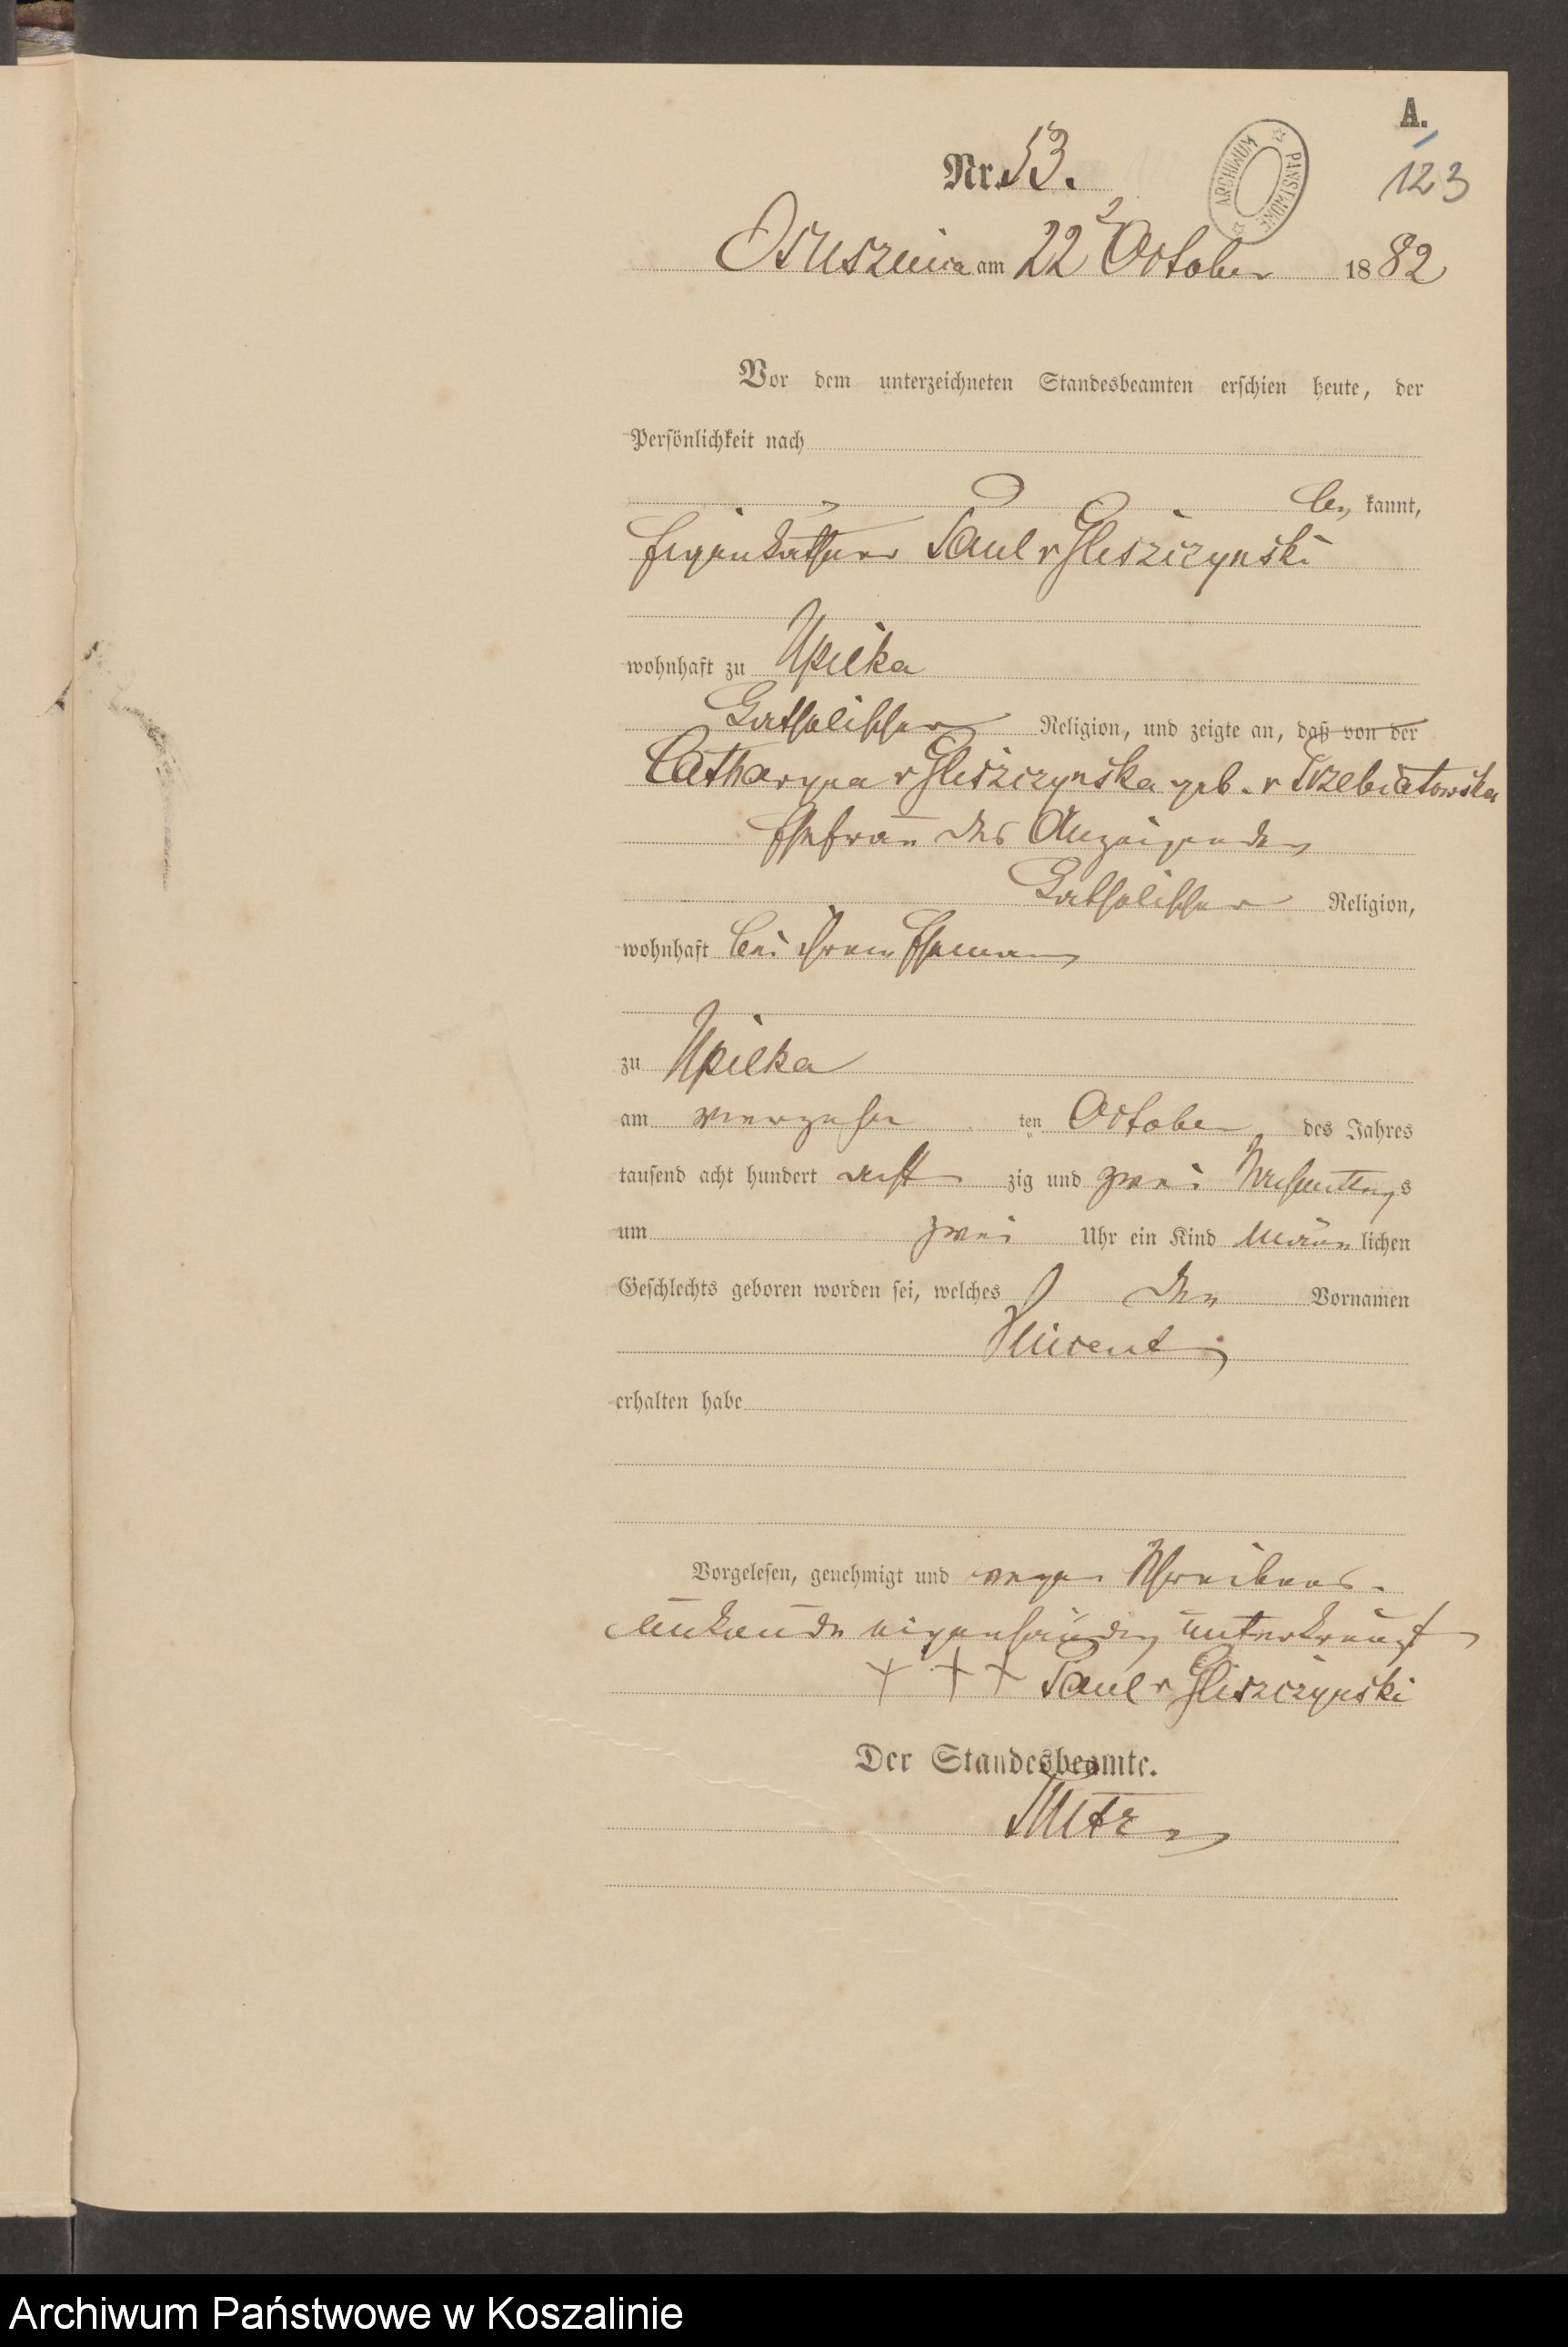 A.
Nr. 53.
ARCHIWUM PAŃSTWOWE
123
Osusznica am 22 October 1882
Vor dem unterzeichneten Standesbeamten erschien heute, der
Persönlichkeit nach
be kannt,
Eigenkäthner Paul v Gliszczynski
wohnhaft zu Upilka
Catholischer Religion, und zeigte an, daß von der
Catharyna v Gliszczynska geb. v Trzebiatowska
Ehefrau des Anzeigenden
Catholischer Religion,
wohnhaft bei ihrem Ehemann
zu Upilka
am vierzehn ten October des Jahres
tausend acht hundert acht zig und zwei Nachmittags
um zwei Uhr ein Kind männ lichen
Geschlechts geboren worden sei, welches den Vornamen
Vincent
erhalten habe
Vorgelesen, genehmigt und wegen Schreibens-
unkunde eigenhändig unterkreuzt
+ + + Paul v Gliszczynski
Der Standesbeamte.
Archiwum Państwowe w Koszalinie